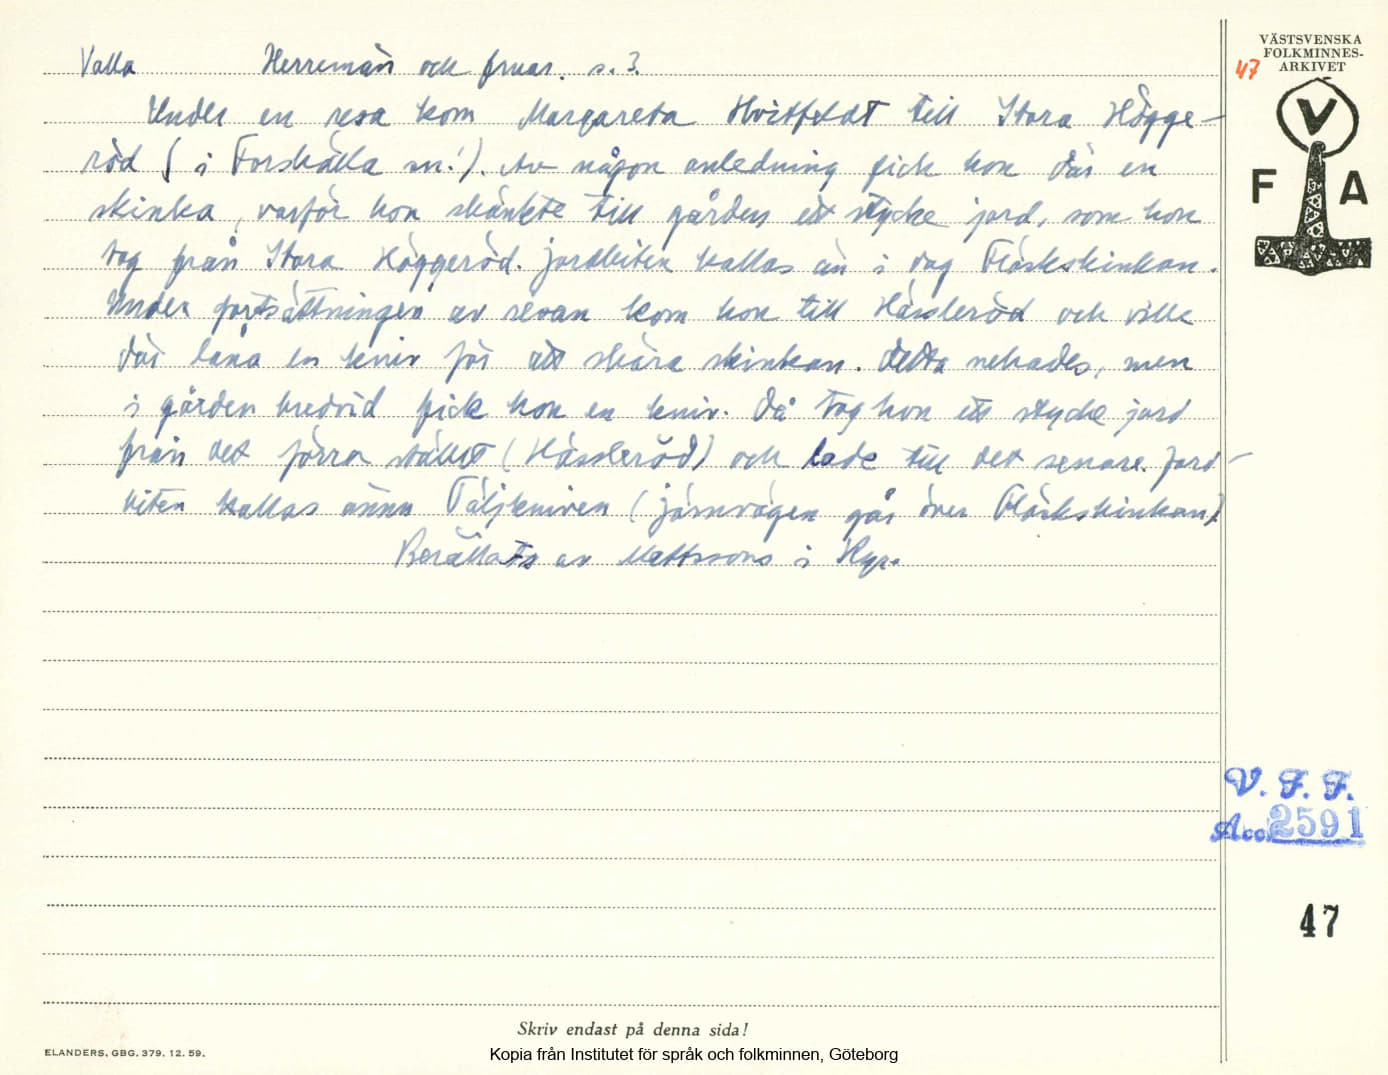 Valla Herremän och fruar. s. 3.
Under en resa kom Margareta Hvitfeldt till Stora Högge-
röd (i Forshälla sn!). Av någon anledning fick hon där en
skinka, varför hon skänkte till gården ett stycke jord, som hon
tog från Stora Höggeröd. Jordbiten kallas än i dag Fläskskinkan.
Under fortsättningen av resan kom hon till Hässleröd och ville
där låna en kniv för att skära skinkan. Detta nekades, men
i gården bredvid fick hon en kniv. Då tog hon ett stycke jord
från det förra stället (Hässleröd) och lade till det senare. Jord-
biten kallas ännu Täljkniven (järnvägen går över Fläskskinkan)
Berättats av Mattssons i Hyr.
VÄSTSVENSKA
FOLKMINNES-
ARKIVET
47
V
F A
V. F. F.
Acc. 2591
47
Skriv endast på denna sida!
ELANDERS, GBG. 379. 12. 59.
Kopia från Institutet för språk och folkminnen, Göteborg